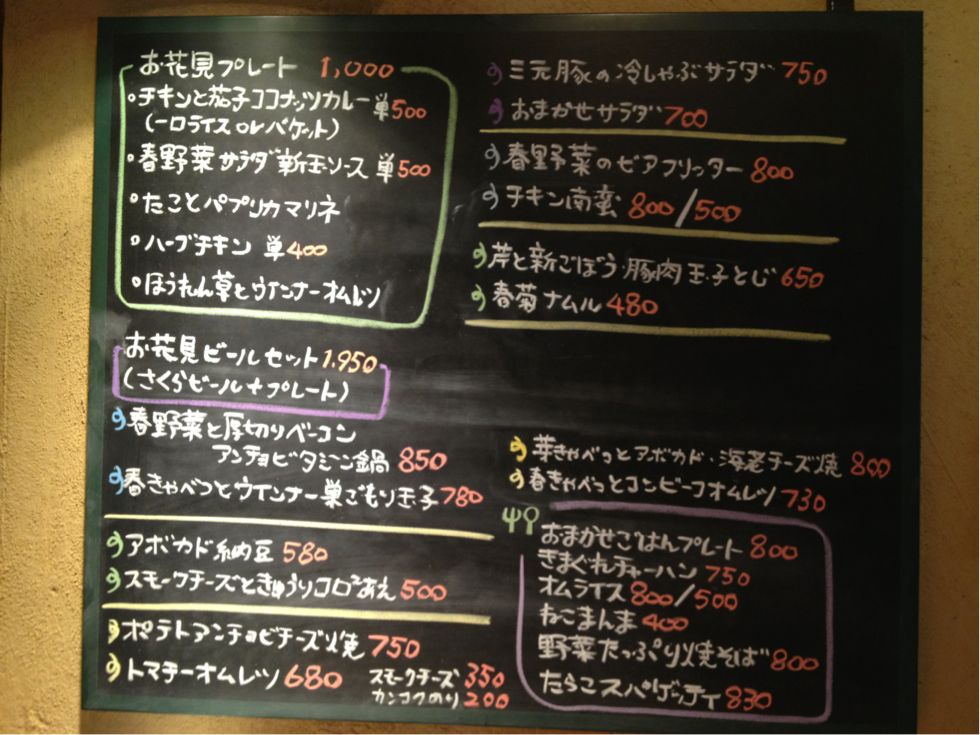 お花見プレート 1,000
•チキンと茄子ココナッツカレー 単500
(一口ライス orバケット)
•春野菜サラダ 新玉ソース 単500
•たことパプリカマリネ
•ハーブチキン 単400
•ほうれん草とウインナーオムレツ
お花見ビールセット 1.950
(さくらビール+プレート)
春野菜と厚切りベーコン
アンチョビタミーン鍋 850
春きゃべつとウインナー巣ごもり玉子 780
アボカド納豆 580
スモークチーズときゅうりコロコロあえ 500
ポテトアンチョビチーズ焼 750
トマチーオムレツ 680
スモークチーズ 350
カンコクのり 200
三元豚の冷しゃぶサラダ 750
おまかせサラダ 700
春野菜のビアフリッター 800
チキン南蛮 800/500
芹と新ごぼう豚肉玉子とじ 650
春菊ナムル 480
芽きゃべつとアボカド・海老チーズ焼 800
春きゃべつとコンビーフオムレツ 730
おまかせごはんプレート 800
きまぐれチャーハン 750
オムライス 800/500
ねこまんま 400
野菜たっぷり焼そば 800
たらこスパゲッティ 830